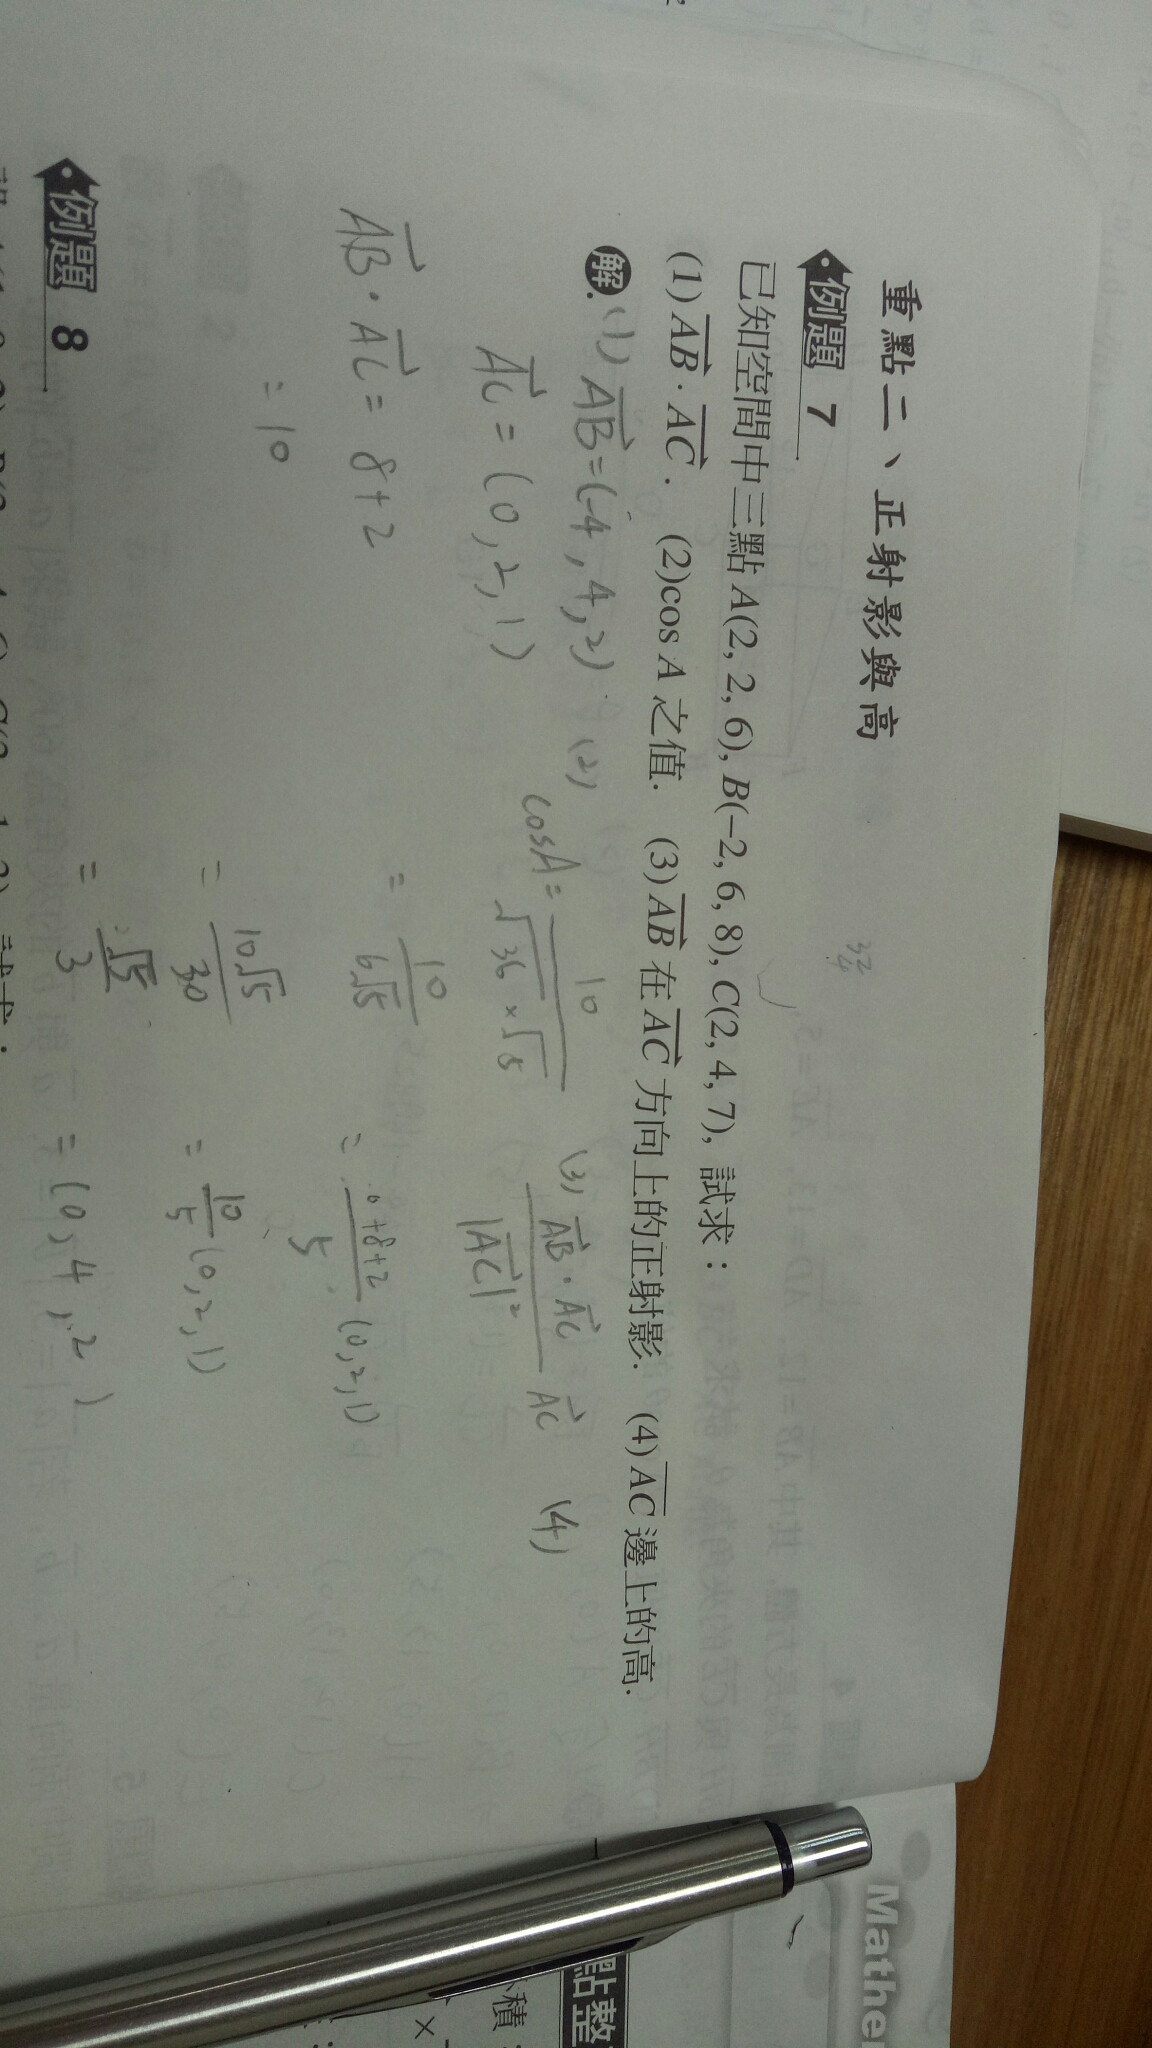 重點二、正射影與高
例題 7
已知空間中三點 A(2, 2, 6), B(−2, 6, 8), C(2, 4, 7), 試求：
(1) AB · AC. (2)cos A 之值. (3) AB 在 AC 方向上的正射影. (4) AC 邊上的高.
解.
(1) AB = (-4, 4, 2)
AC = (0, 2, 1)
AB · AC = 8+2
= 10
(2)
cosA = 10 / √36 × √5
= 10 / 6√5
= 10√5 / 30
= √5 / 3
(3) AB · AC / |AC|² AC
= 0+8+2 / 5 (0, 2, 1)
= 10 / 5 (0, 2, 1)
= (0, 4, 2)
(4)
例題 8
32
4
Mathe
點整
積
×